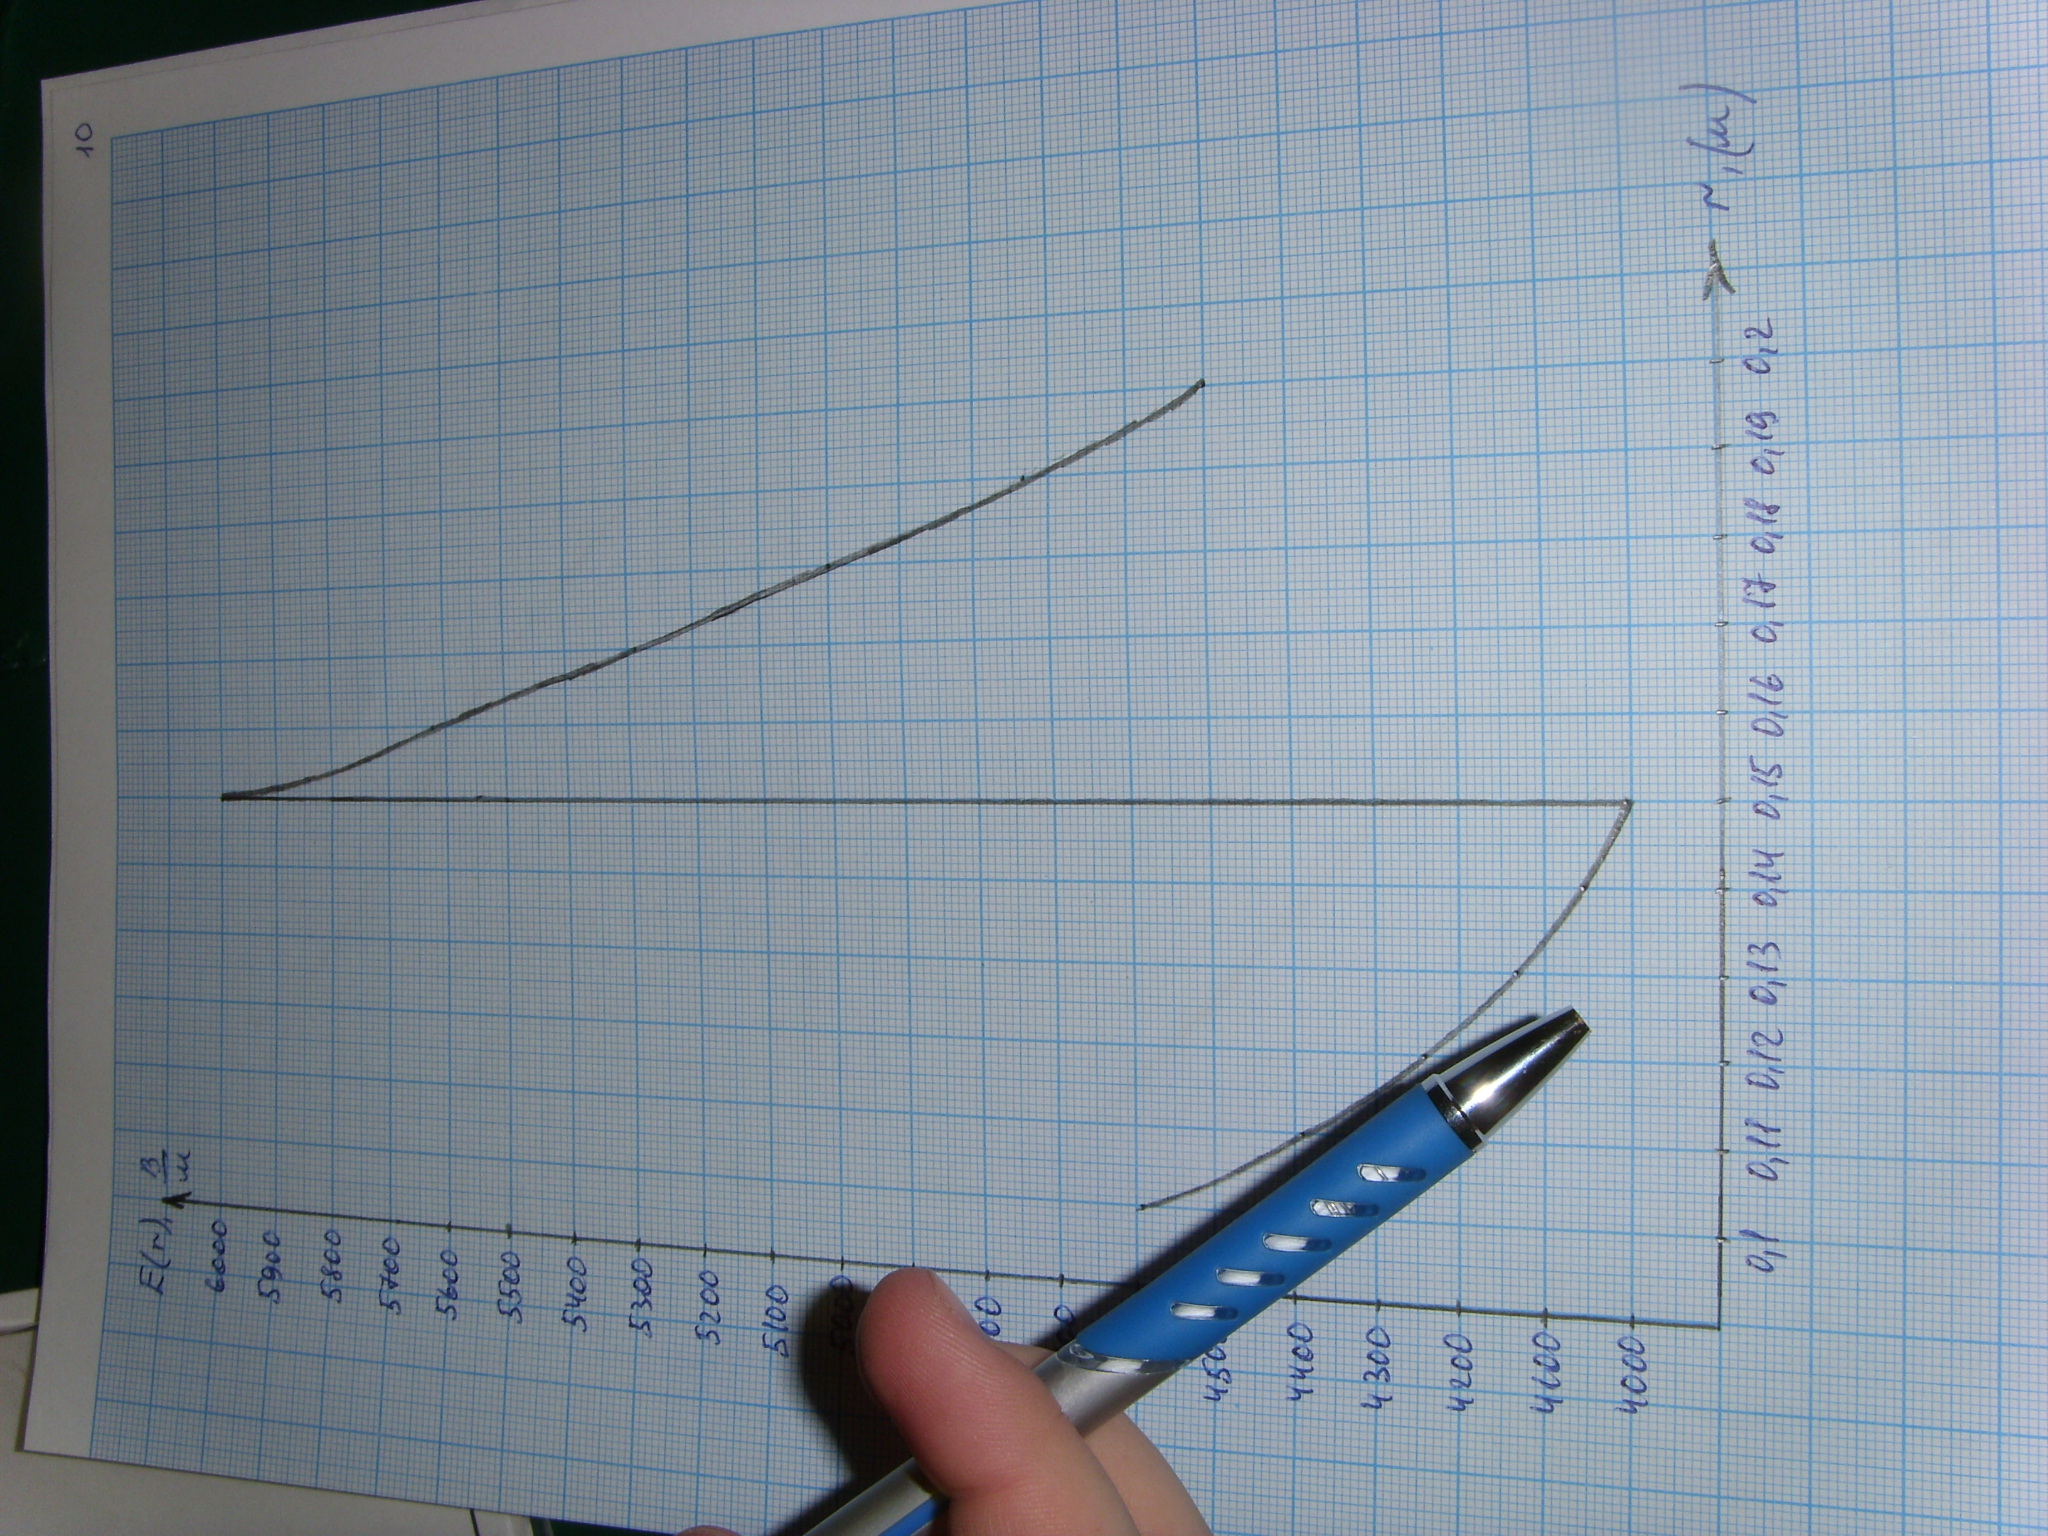 10
E(r), В/м
6000
5900
5800
5700
5600
5500
5400
5300
5200
5100
5000
4400
4300
4200
4100
4000
0,1 0,11 0,12 0,13 0,14 0,15 0,16 0,17 0,18 0,19 0,2 r,(м)